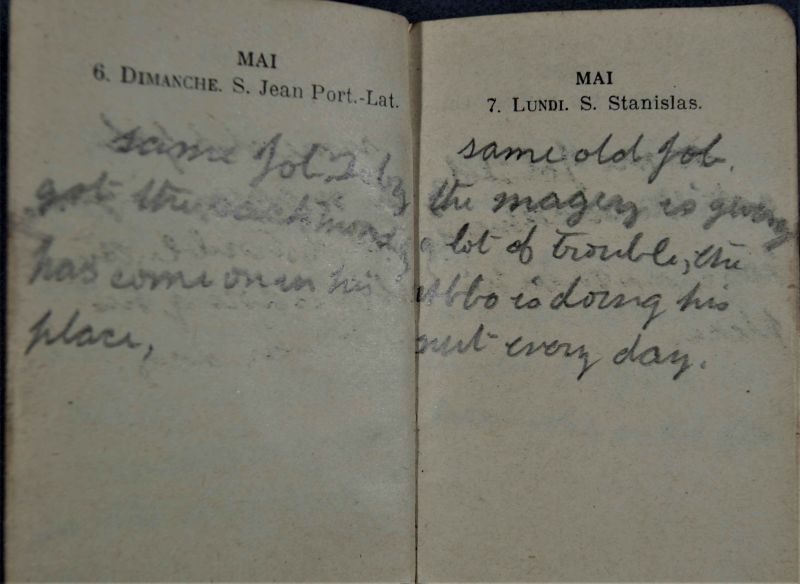 MAI
6. DIMANCHE. S. Jean Port.-Lat.
same job.
got the
has come on in his
place,
MAI
7. LUNDI. S. Stanislas.
same old job.
the magery is giving
a lot of trouble, the
Abbo is doing his
nut every day.